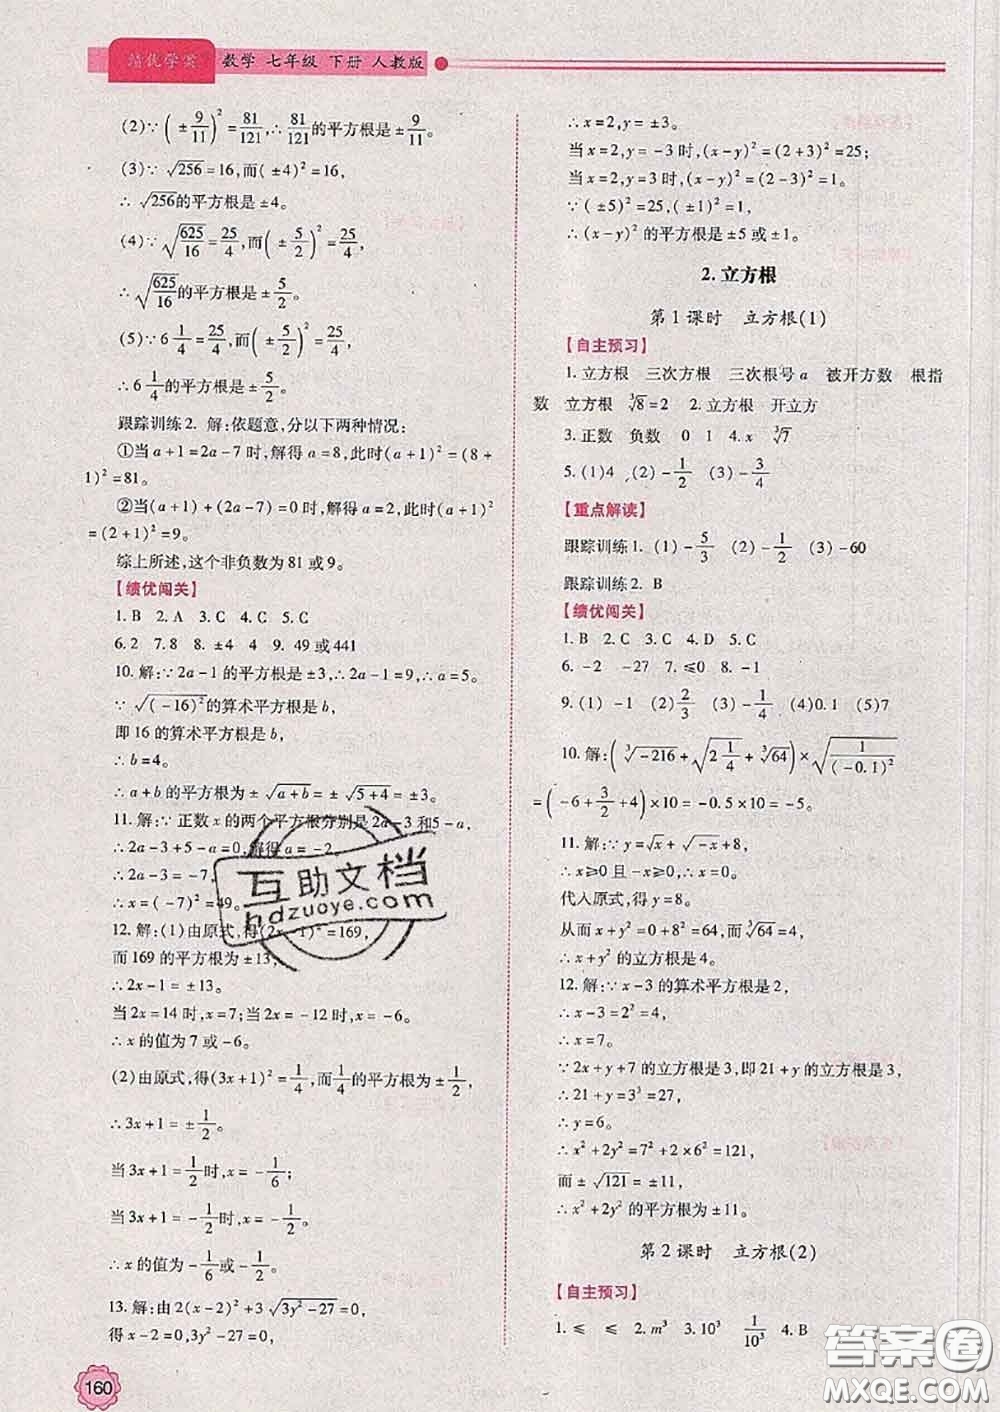 绩优学案 数学 七年级 下册 人教版
(2)∵(±9/11)²=81/121,∴81/121的平方根是±9/11。
(3)∵√256=16,而(±4)²=16,
∴√256的平方根是±4。
(4)∵√(625/16)=25/4,而(±5/2)²=25/4,
∴√(625/16)的平方根是±5/2。
(5)∵6 1/4=25/4,而(±5/2)²=25/4,
∴6 1/4的平方根是±5/2。
跟踪训练2. 解:依题意,分以下两种情况:
①当a+1=2a-7时,解得a=8,此时(a+1)²=(8+
1)²=81。
②当(a+1)+(2a-7)=0时,解得a=2,此时(a+1)²
=(2+1)²=9。
综上所述,这个非负数为81或9。
【绩优闯关】
1. B 2. A 3. C 4. C 5. C
6. 2 7. 8 8. ±4 9. 49或441
10. 解:∵2a-1的平方根是±3,∴2a-1=9,∴a=5。
∵√(-16)²的算术平方根是b,
即16的算术平方根是b,
∴b=4。
∴a+b的平方根为±√(a+b)=±√(5+4)=±3。
11. 解:∵正数x的两个平方根分别是2a-3和5-a,
∴2a-3+5-a=0,解得a=-2。
∴2a-3=-7。
∴x=(-7)²=49。
12. 解:(1)由原式,得(2x-1)²=169,
而169的平方根为±13,
∴2x-1=±13。
当2x=14时,x=7;当2x=-12时,x=-6。
∴x的值为7或-6。
(2)由原式,得(3x+1)²=1/4,而1/4的平方根为±1/2,
∴3x+1=±1/2。
当3x+1=1/2时,x=-1/6;
当3x+1=-1/2时,x=-1/2。
∴x的值为-1/6或-1/2。
13. 解:由2(x-2)²+3√(3y²-27)=0,
得x-2=0,3y²-27=0,
160
∴x=2,y=±3。
当x=2,y=-3时,(x-y)²=(2+3)²=25;
当x=2,y=3时,(x-y)²=(2-3)²=1。
∵(±5)²=25,(±1)²=1,
∴(x-y)²的平方根是±5或±1。
2. 立方根
第1课时 立方根(1)
【自主预习】
1. 立方根 三次方根 三次根号a 被开方数 根指
数 立方根 ³√8=2 2. 立方根 开立方
3. 正数 负数 0 1 4. x ³√7
5. (1)4 (2)-1/2 (3)-3/4
【重点解读】
跟踪训练1. (1)-5/3 (2)-1/2 (3)-60
跟踪训练2. B
【绩优闯关】
1. B 2. C 3. C 4. D 5. C
6. -2 -27 7. ≤0 8. -1
9. (1)-1 (2)2/3 (3)-1/4 (4)0.1 (5)7
10. 解:(³√-216+√(2 1/4)+³√64)×√(1/(-0.1)²)
=(-6+3/2+4)×10=-0.5×10=-5。
11. 解:∵y=√x+√-x+8,
∴x≥0且-x≥0,∴x=0。
代入原式,得y=8。
从而x+y²=0+8²=64,而³√64=4,
∴x+y²的立方根是4。
12. 解:∵x-3的算术平方根是2,
∴x-3=2²=4。
∴x=7。
∵2x+y+7的立方根是3,即21+y的立方根是3,
∴21+y=3³=27,
∴y=6。
∴x²+2y²=7²+2×6²=121,
而±√121=±11,
∴x²+2y²的平方根为±11。
第2课时 立方根(2)
【自主预习】
1. ≤ ≤ 2. m³ 3. 10³ 1/10³ 4. B
互助文档
hdzuoye.com
答案圈
MXQE.COM